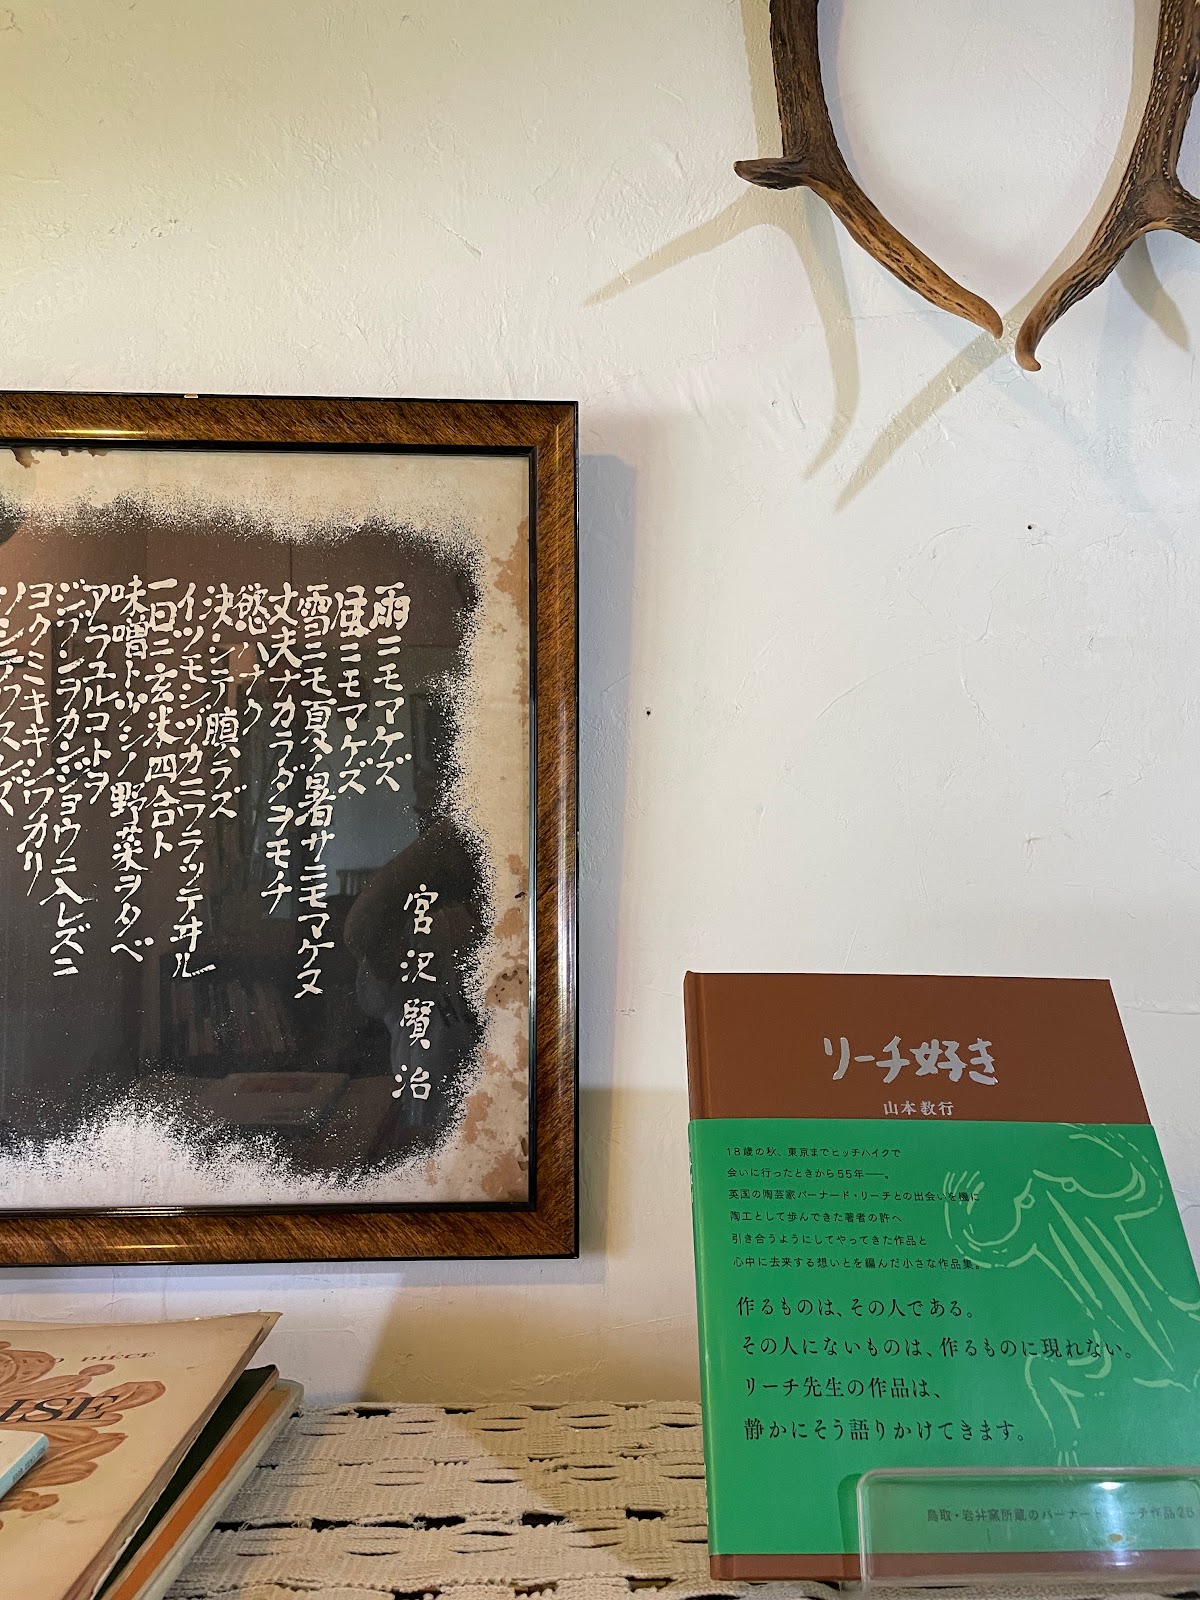 雨ニモマケズ
風ニモマケズ
雪ニモ夏ノ暑サニモマケヌ
丈夫ナカラダヲモチ
慾ハナク
決シテ瞋ラズ
イツモシヅカニワラッテヰル
一日ニ玄米四合ト
味噌ト少シノ野菜ヲタベ
アラユルコトヲ
ジブンヲカンジョウニ入レズニ
ヨクミキキシワカリ
ソシテワスレズ
宮沢賢治
リーチ好き
山本教行
18歳の秋、東京までヒッチハイクで
会いに行ったときから55年——。
英国の陶芸家バーナード・リーチとの出会いを機に
陶工として歩んできた著者の許へ
引き合うようにしてやってきた作品と
心中に去来する想いとを編んだ小さな作品集。
作るものは、その人である。
その人にないものは、作るものに現れない。
リーチ先生の作品は、
静かにそう語りかけてきます。
鳥取・岩井窯所蔵のバーナード・リーチ作品28
PIÈCE